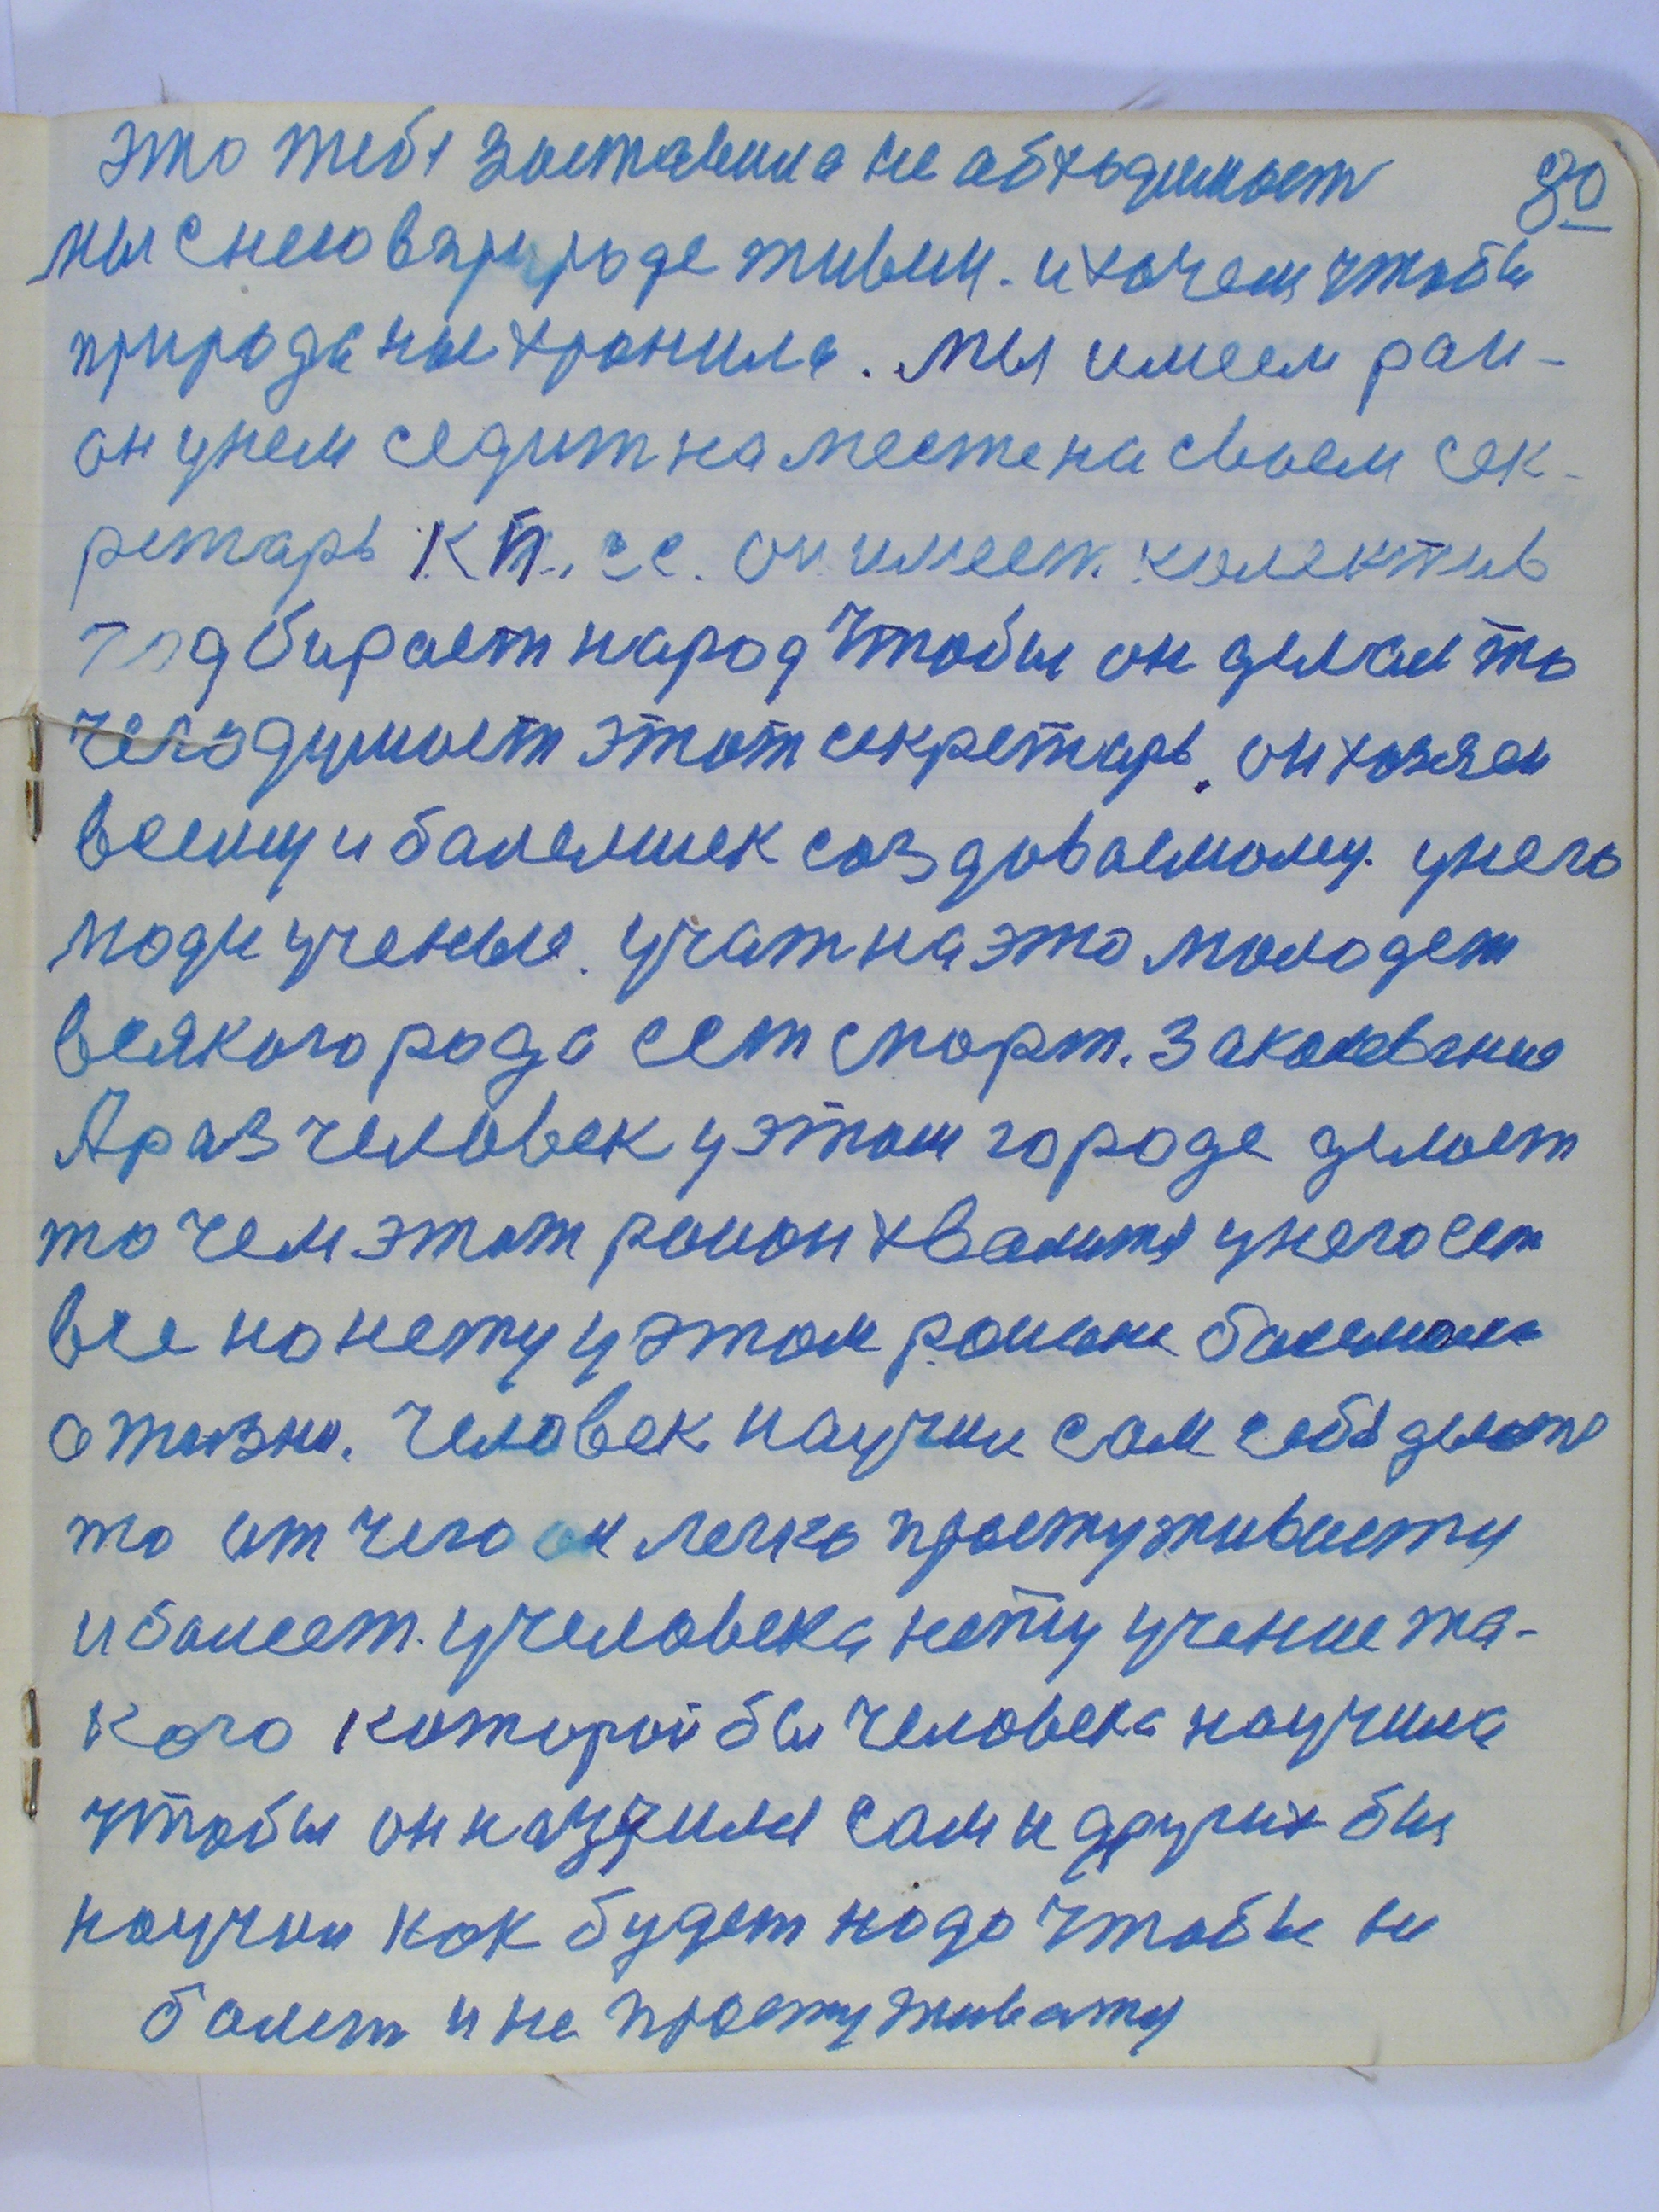 это тебя заставила не абхьдимост 80
мы снею вприроде живем. и хочем чтобы
природа нас хронила. мы имеем рай-
он унем седит на месте на своем сек-
ретарь КП.,сс. он имеет. колектив
подбирает народ чтобы он делал то
чего думает этот секретарь. он хозяен
всему и балелшек создоваемому. унего
люди ученые. учат на это молодеж
всякого рода ест спорт. Закалевание
А раз человек у этом городе делает
то чем этот район хвалитя унего ест
все но нету у этом районе
о жизни. человек научил сам себя делат
то от чего он легко простуживаетц
и балеет. учеловека нету учение та-
кого которой бы человека научила
чтобы он научился сам и других бы
научил как будет надо чтобы не
балеть и не простуживатц